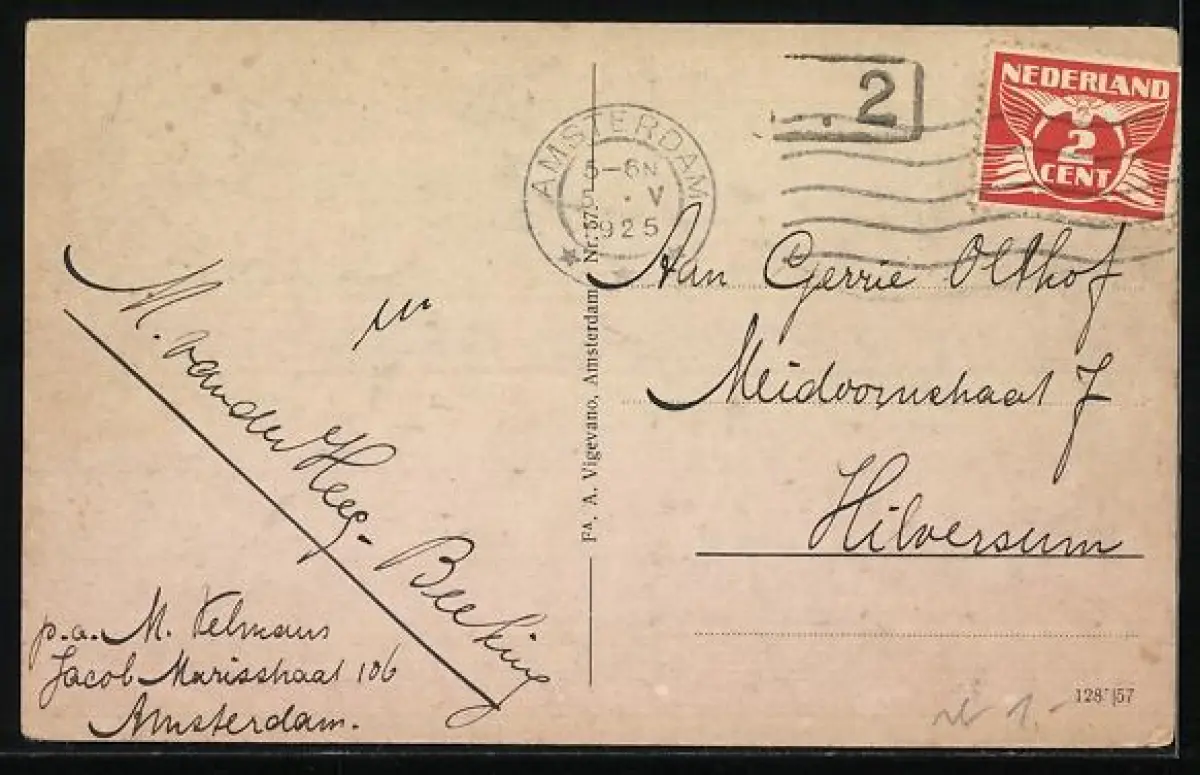 NEDERLAND
2
CENT
2
AMSTERDAM
5-6N
V
1925
M. van der Heeg-Beeking
p.a. M. Velmans
Jacob Marisstraat 106
Amsterdam.
FA. A. Vigevano, Amsterdam Nr. 57
Aan Gerrie Olthof
Meidoornstraat 7
Hilversum
128 57
1.-